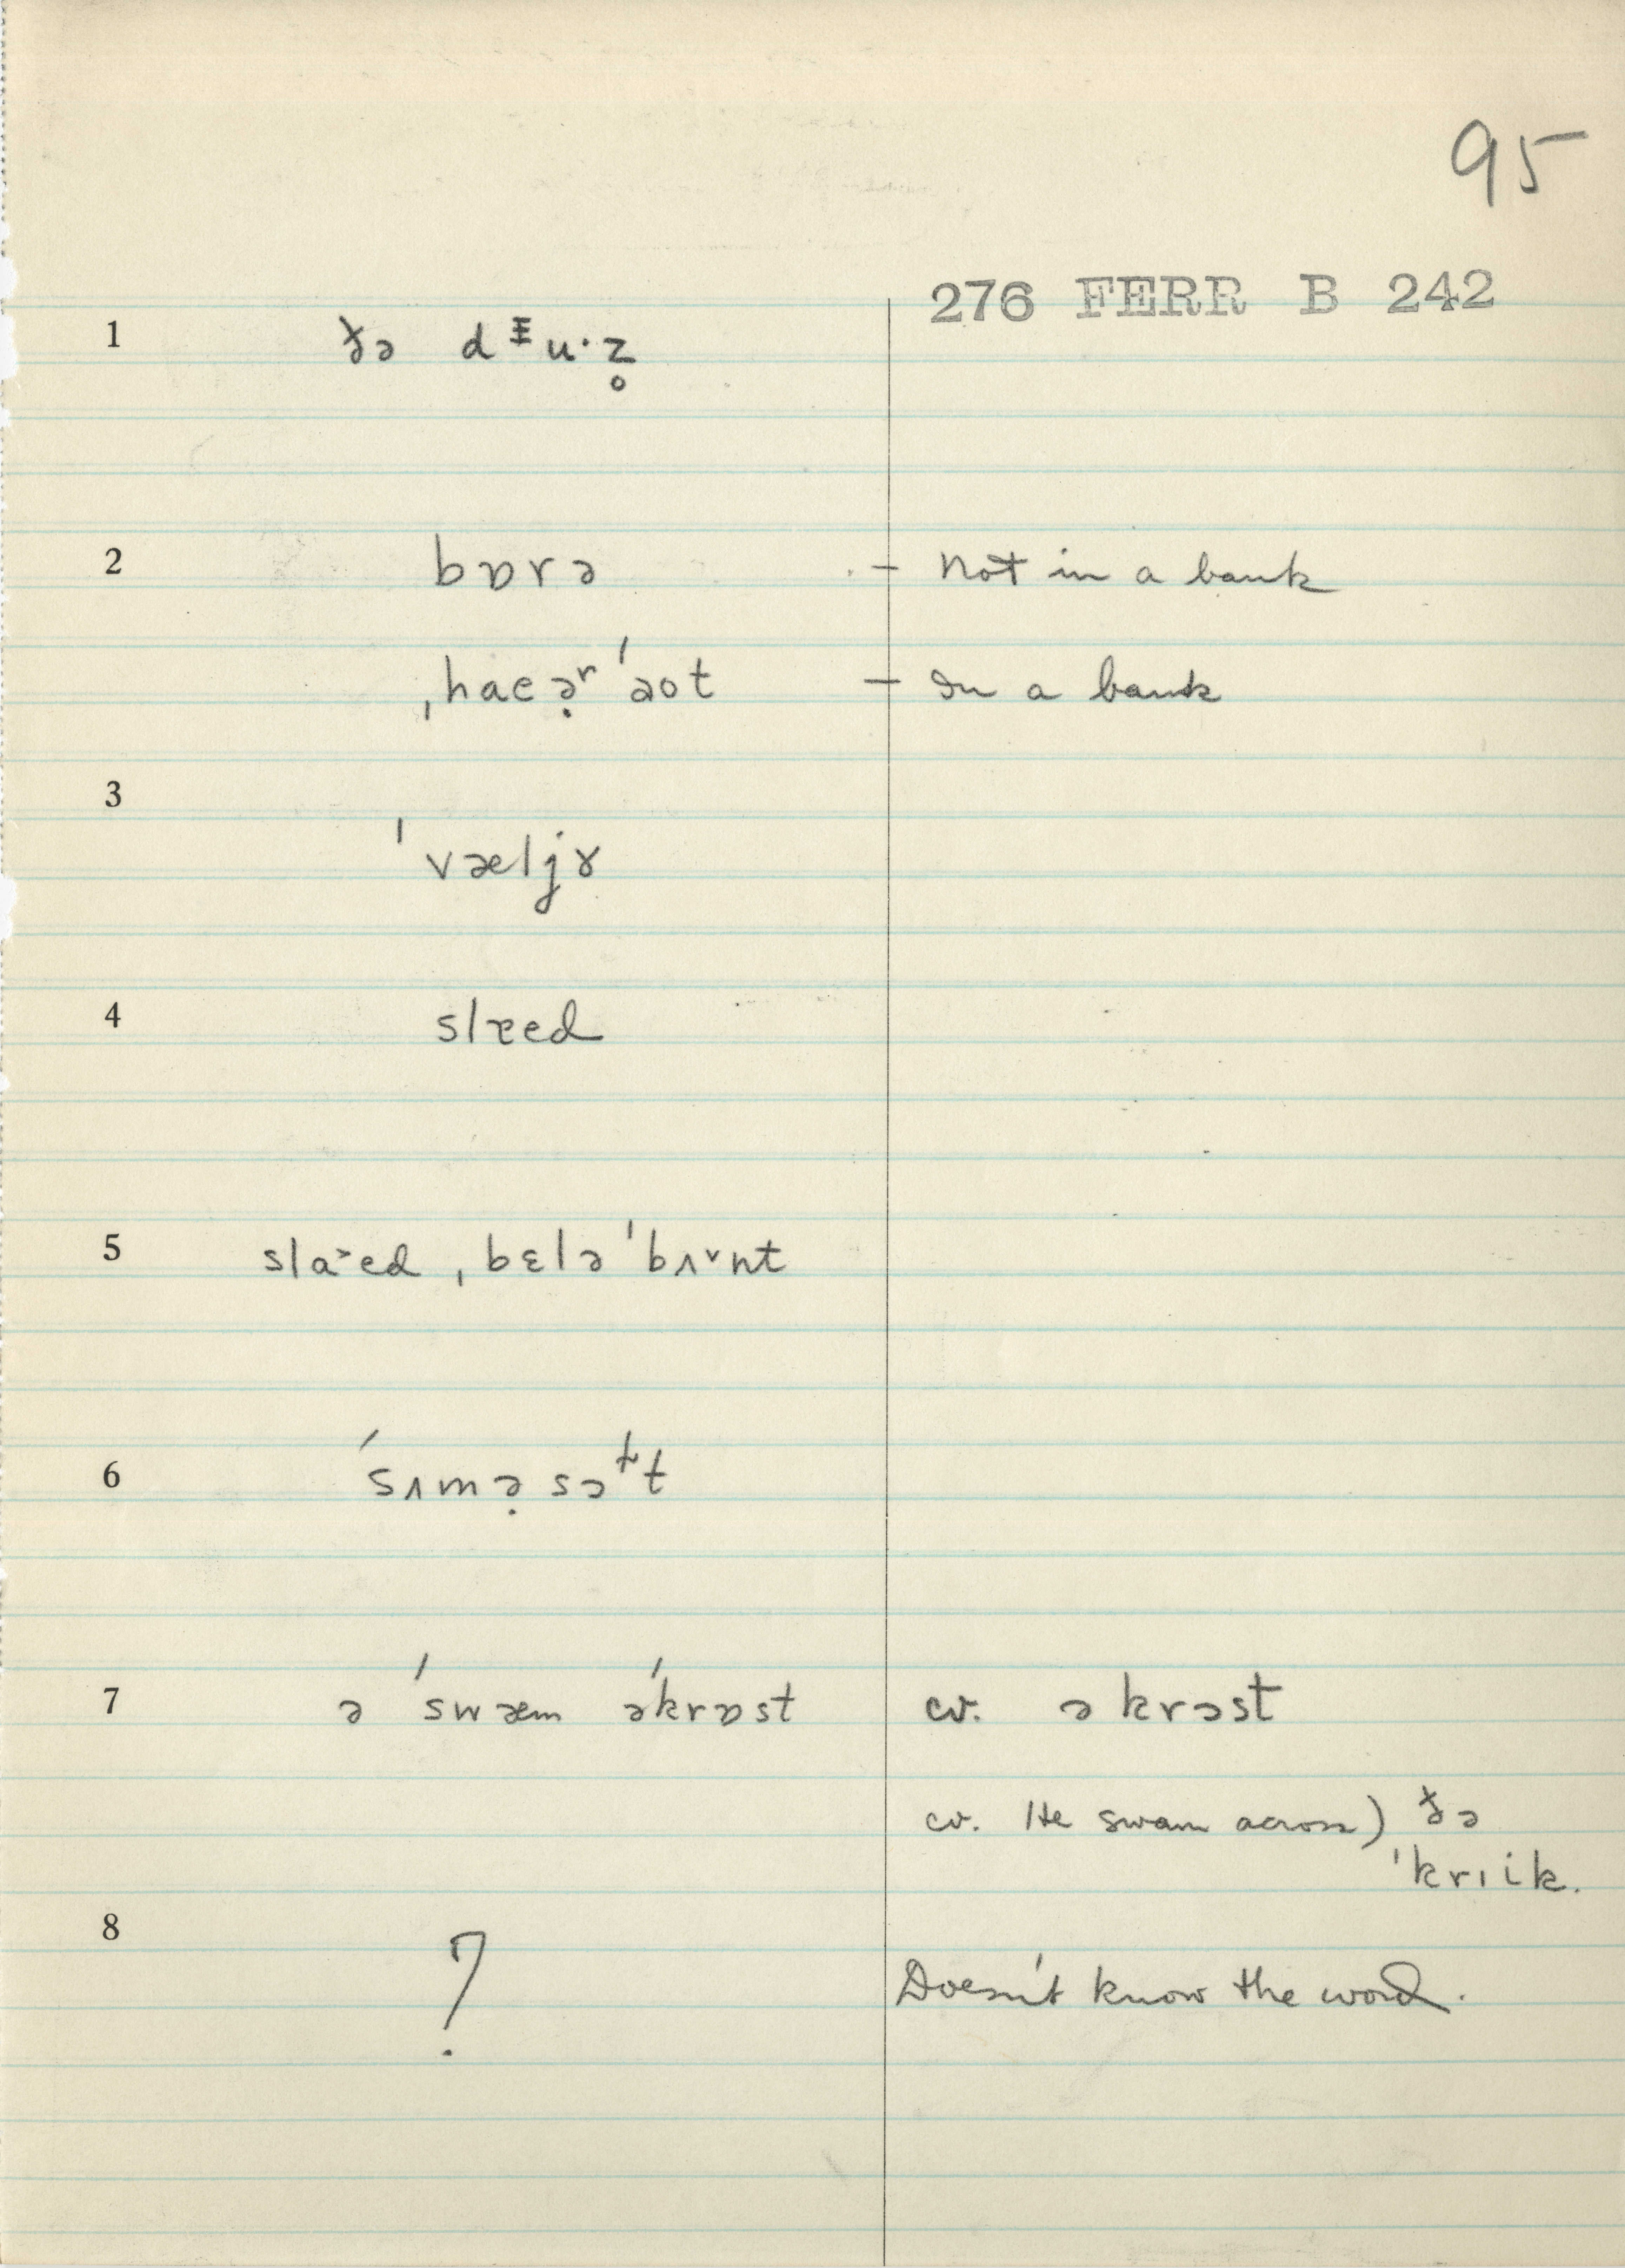 95
276 FERR B 242
1 ðə dᵻu·z̥
2 bɒrə – not in a bank
ˌhaeə̣ʳˈəot – In a bank
3 ˈvæljɤ
4 slæed
5 sla˃ed ˌbɛləˈbʌ˅nt
6 ˈsʌmə̣sɔᵗt
7 ə ˈswæm əˈkrɒst cv. əkrɔst
cv. He swam across) ðə
ˈkrɪik.
8 ? Doesn't know the word.